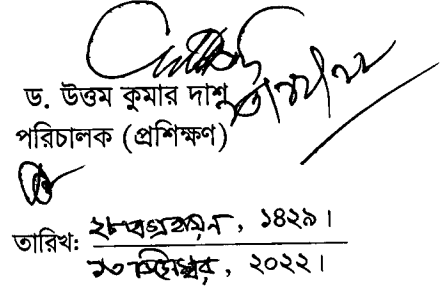 ড. উত্তম কুমার দাশ
পরিচালক (প্রশিক্ষণ)
তারিখ: ২৮ অগ্রহায়ন, ১৪২৯।
১৩ ডিসেম্বর, ২০২২।